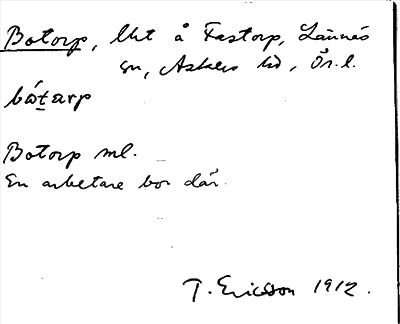 Botorp, lht å Fastorp, Lännäs
sn, Askers hd, Ör.l.
bó̀tarp
Botorp ml.
En arbetare bor där.
T. Ericsson 1912.